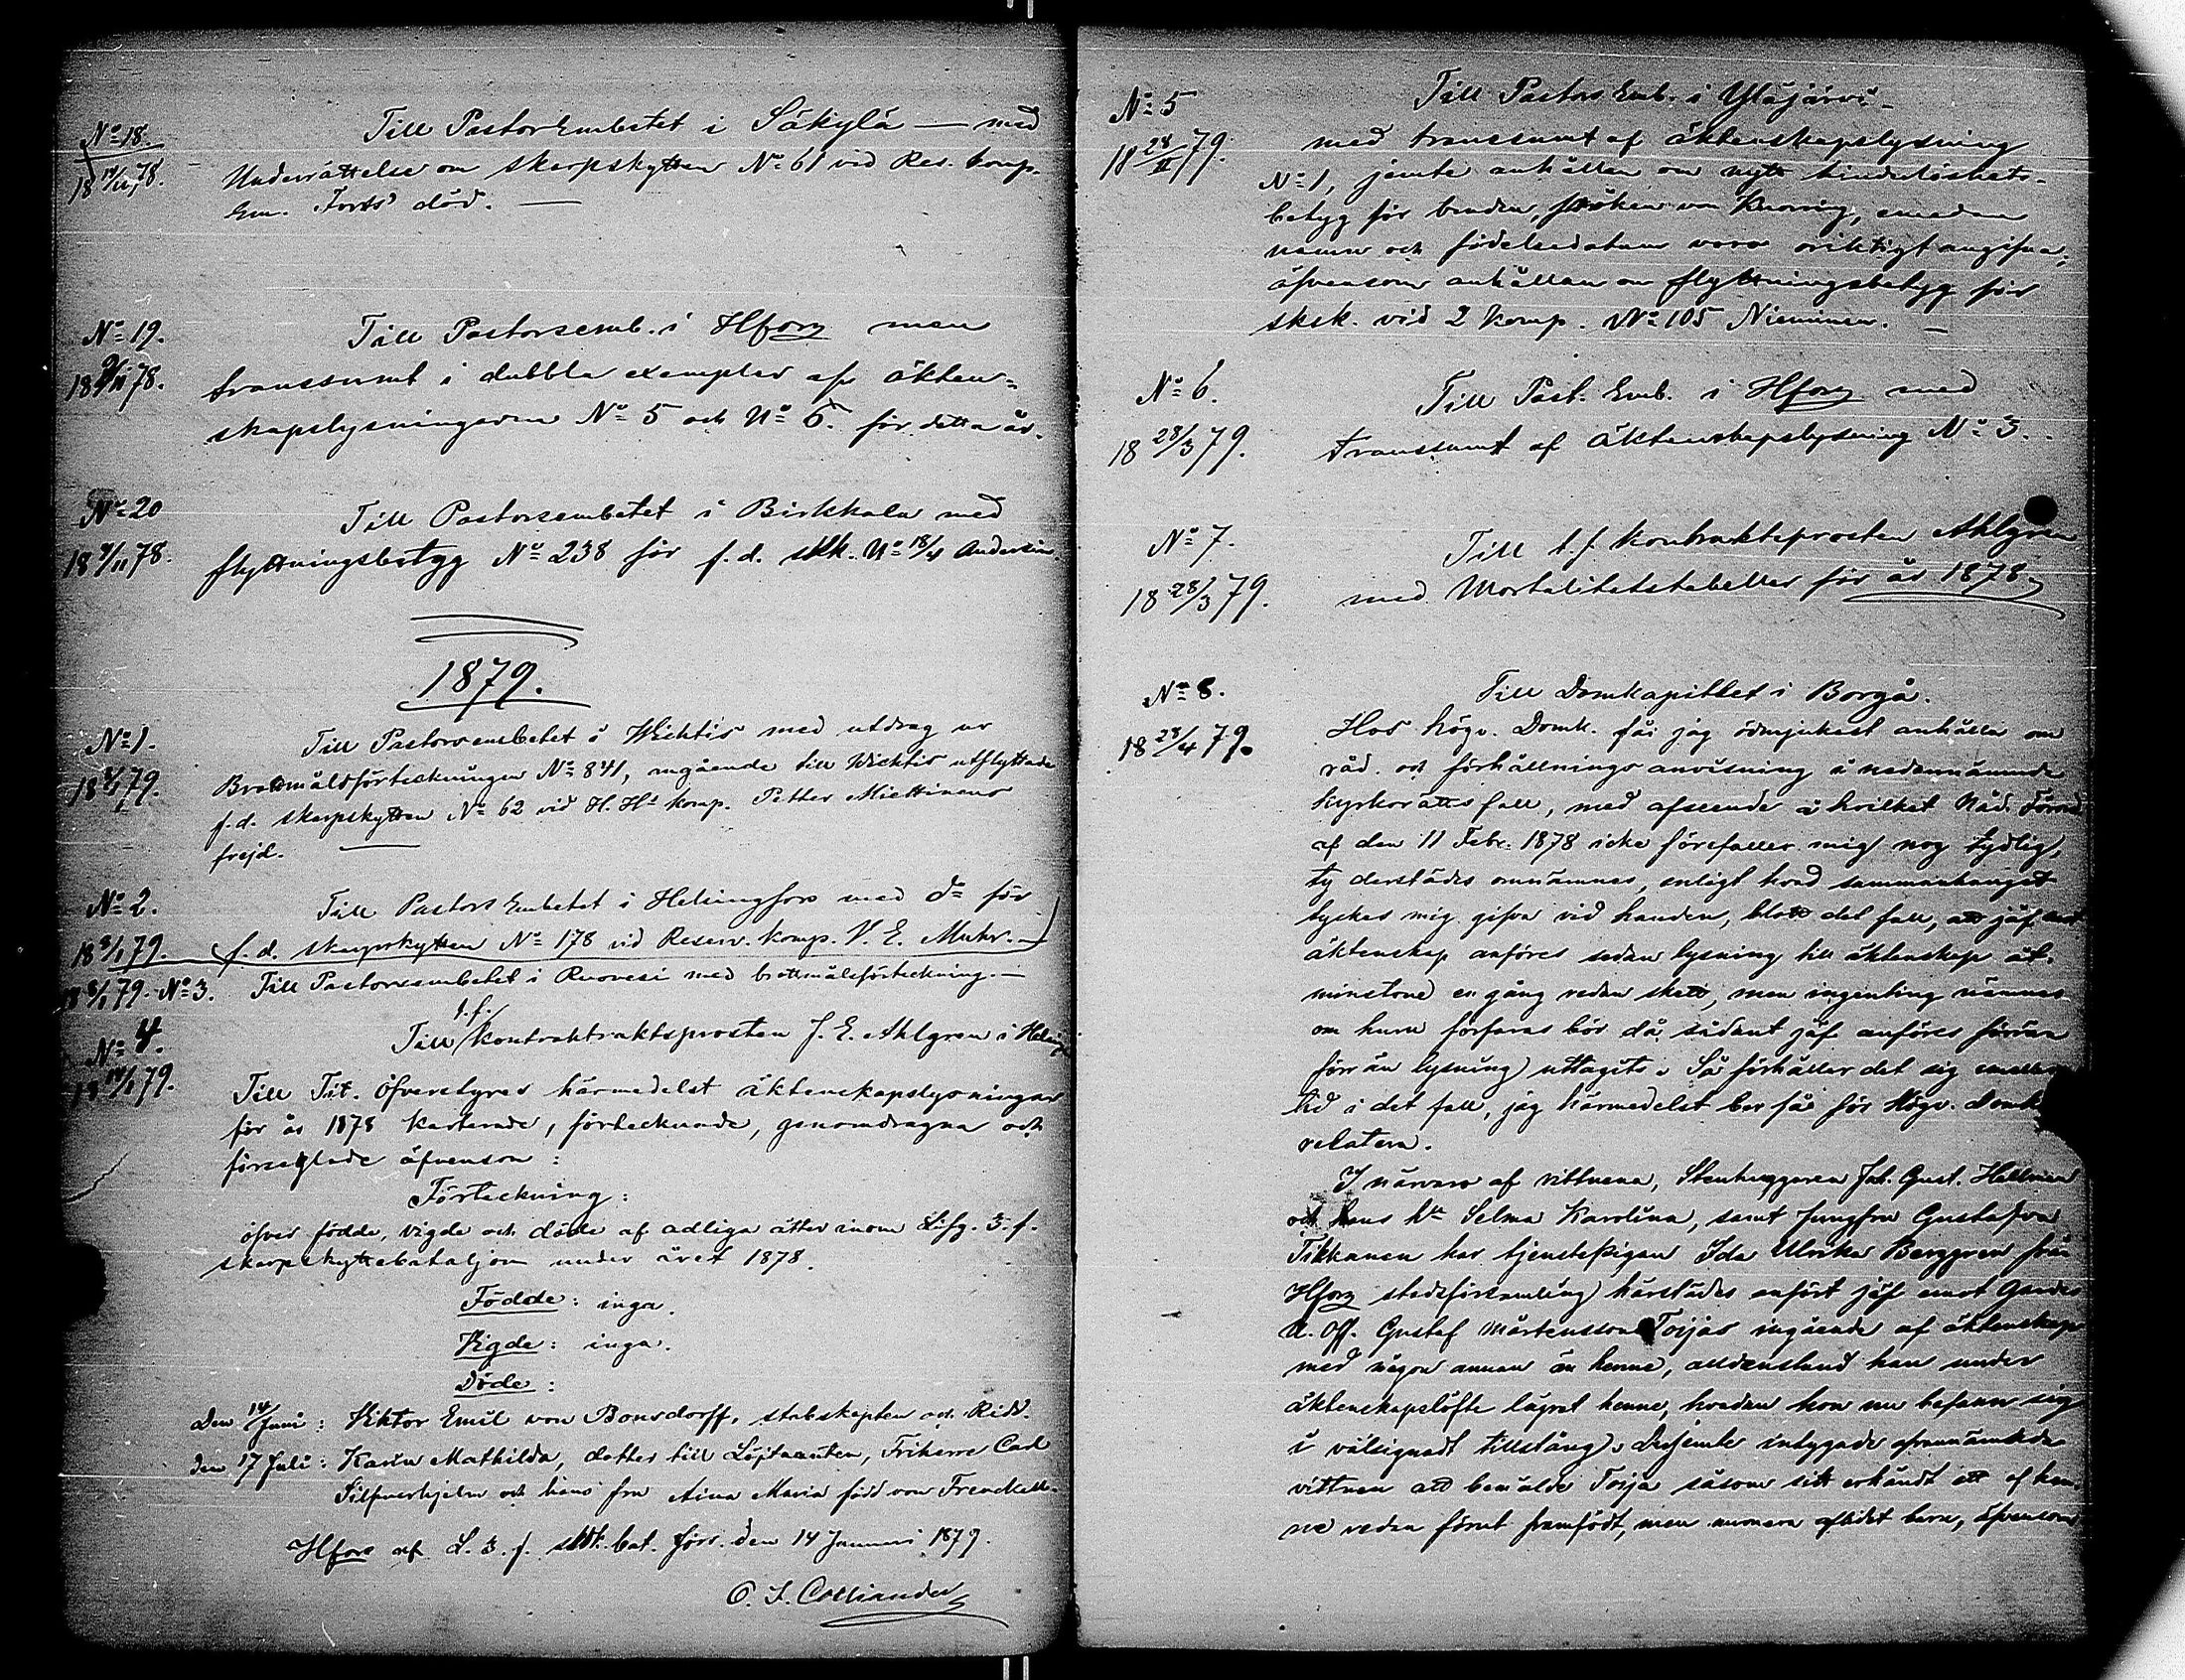 No 18.
Till Pastorsembetet i Säkylä — med
18 14/11 78.
Underrättelse om skarpskytten No 61 vid Res. komp.
Em. Forss' död. —
No 19.
Till Pastorsemb. i Hfors men
18 9/11 78.
transsumt i dubbla exemplar af äkten=
skapslysningarna No 5 och No 6. för detta år.
No 20
Till Pastorsembetet i Birkkala med
18 9/11 78.
flyttningsbetyg No 238 för f.d. skk. No 18/4 Andersin
1879.
No 1.
Till Pastorsembetet i Wichtis med utdrag ur
18 8/1 79.
Brottmålsförteckningen No 841, angående till Wichtis utflyttade
f.d. skarpskytten No 62 vid H. Hs komp. Petter Miettinens
frejd. —
No 2.
Till Pastors Embetet i Helsingfors med do för
18 8/1 79.
f.d. skarpskytten No 178 vid Reserv. komp. V. E. Muhr. —
18 8/1 79. No 3. Till Pastorsembetet i Ruovesi med brottmålsförteckning. —
No 4.
t.f.
Till kontraktraktsprosten J. E. Ahlgren i Helsinge
18 14/1 79.
Till Tit. öfverstyres härmedelst äktenskapslysningar
för år 1878 karterade, förtecknade, genomdragna och
förseglade äfvensom:
Förteckning:
öfver födde, vigde och döde af adliga ätter inom Lifg. 3. f.
skarpskyttebataljon under året 1878.
Födde: inga.
Vigde: inga.
Döde:
Den 14 Juni: Viktor Emil von Bonsdorff, stabskapten och Ridd.
den 17 Juli: Karin Mathilda, dotter till Löjtnanten, Friherre Carl
Silfverhjelm och hans fru Aina Maria född von Frenckell.
Hfors af L. 3. f. skk. bat. förs. den 14 Januari 1879.
O. I. Colliander
No 5
Till Pastors Emb. i Ylöjärvi —
18 28/II 79.
med transsumt af äktenskapslysning
No 1, jemte anhållan om nytt hinderlöshets-
betyg för bruden, fröken von Knorring, emedan
namn och födelsedatum voro oriktigt angifna;
äfvensom anhållan om flyttningsbetyg för
sksk. vid 2 komp. No 105 Nieminen. —
No 6.
Till Past. Emb. i Hfors med
18 28/3 79.
transsumt af äktenskapslysning No 3.
No 7.
Till t.f. kontraktsprosten Ahlgren
18 28/3 79.
med Mortalitetstabeller för år 1878.
No 8.
Till Domkapitlet i Borgå.
18 28/4 79.
Hos högv. Domk. får jag ödmjukast anhålla om
råd och förhållningsanvisning i nedannämnde
kyrkorätts fall, med afseende å hvilket Nåd. Förord.
af den 11 Febr. 1878 icke förefaller mig nog tydlig,
ty derstädes omnämnes, enligt hvad sammanhanget
tyckes mig gifva vid handen, blott det fall, att jäf mot
äktenskap anföres sedan lysning till äktenskap åt-
minstone en gång redan skett, men ingenting nämnes
om huru förfaras bör då sådant jäf anföres
förrän lysning uttagits. Så förhåller det sig emeller
tid i det fall, jag härmedelst ber få för Högv. Domk.
relatera.
I närvaro af vittnena, Stenhuggaren Joh. Gust. Hellman
och hans hu Selma Karolina, samt jungfru Gustafva
Tikkanen har tjenstepigan Ida Ulrika Berggren från
Hfors stadsförsamling härstädes anfört jäf emot Gardes
u. off. Gustaf Mårtensson Toijas ingående af äktenskap
med någon annan än henne, alldenstund han under
äktenskapslöfte lägrat henne, hvadan hon nu befann sig
i välsignadt tillstånd. Derjemte intygade ofvannämnde
vittnen att bemälde Toija såsom sitt erkändt ett af hen-
ne redan förut framfödt, men numera aflidet barn, äfvensom